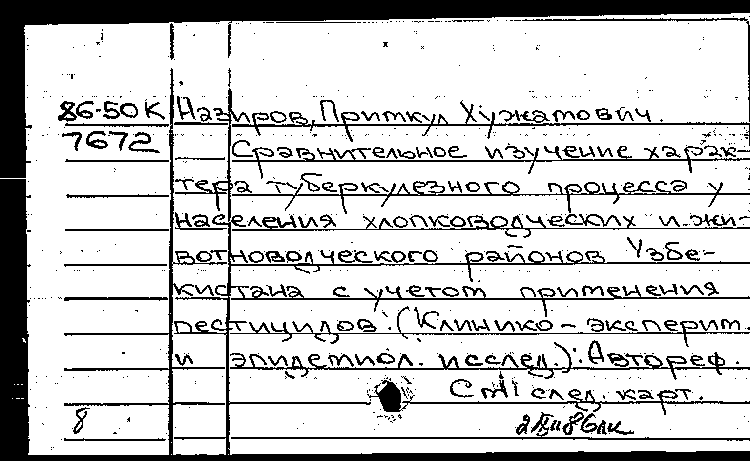 86-50К Назиров, Примкул Хужамович.
7672 Сравнительное изучение харак-
тера туберкулезного процесса у
населения хлопководческих и жи-
вотноводческого районов Узбе-
кистана с учетом применения
пестицидов: (Клинико-эксперим.
и эпидемиол. исслед.): Автореф.
См. след. карт.
8